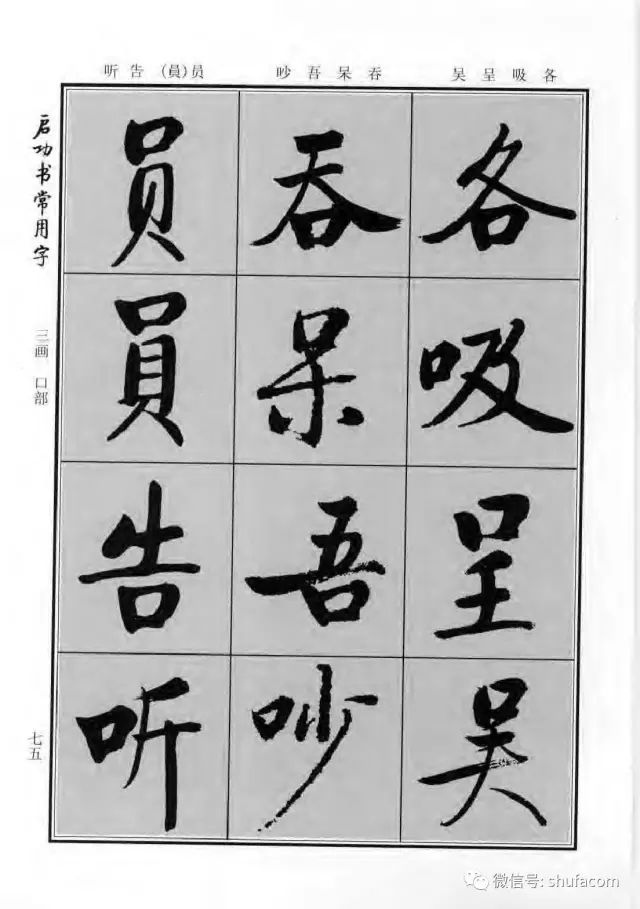 听告(員)员 吵吾呆吞 吴呈吸各
启功书常用字
三画 口部
七五
各吸呈吴
吞呆吾吵
员員告听
微信号: shufacom